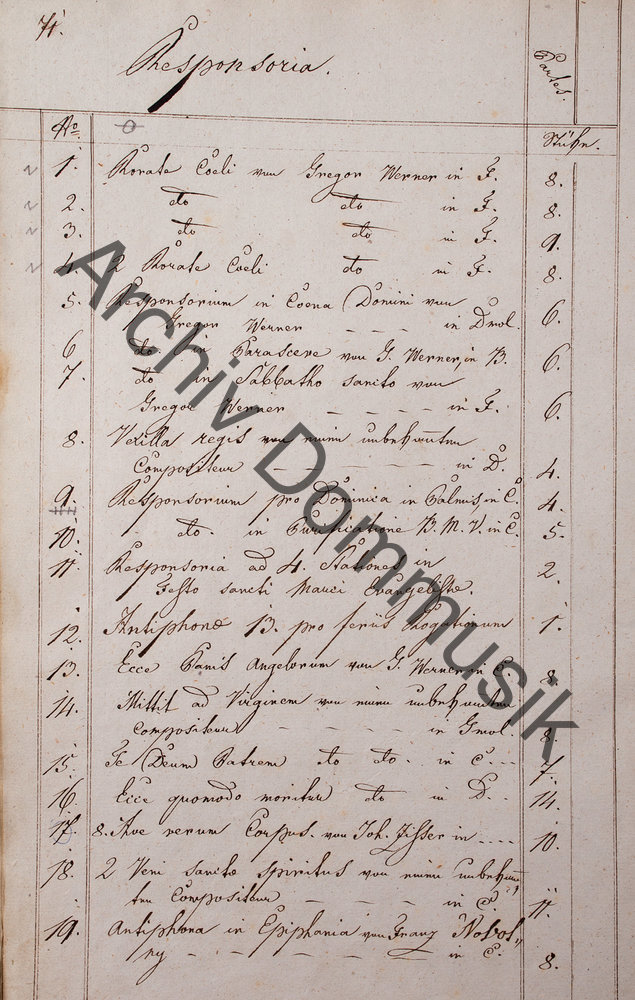 71.
Responsoria.
Partes.
No.
Stüke.
1. Rorate Coeli von Gregor Werner in F. 8.
2. dto dto in F. 8.
3. dto dto in F. 9.
4. 2 Rorate Coeli dto in F. 8.
5. Responsorium in Coena Domini von
Gregor Werner – – – in Dmol. 6.
6 dto. in Parasceve von G. Werner, in B. 6.
7. dto in Sabbatho sancto von
Gregor Werner – – – – in F. 6.
8. Vexilla regis von einem unbekannten
Compositeur – – – – – in D. 4.
9. Responsorium pro Dominica in Palmis, in C. 4.
10. dto. in Purificatione B. M. V. in C. 5.
11. Responsoria ad 4. Stationes in 2.
Festo sancti Marci Evangeliste.
12. Antiphone 13. pro feriis Rogationum 1.
13. Ecce Panis Angelorum von G. Werner, in C. 8.
14. Mittit ad Virginem von einem unbekannten
Compositeur – – – – in Gmol. 8.
15. Te Deum Patrem dto dto. in C. . . . 7.
16. Ecce quomodo moritur dto in D. . . 14.
17. 8. Ave verum Corpus. von Joh. in . . . . 10.
18. 2 Veni sancte spiritus von einem unbekann„
ten Compositeur – – – – in C. 11.
19. Antiphona in Epiphania von Franz Novot„
ny – . – . – . – in C. 8.
Archiv Dommusik